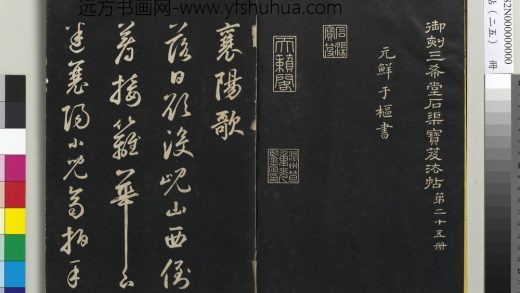 远方书画网-www.yfshuhua.com
御刻三希堂石渠寶笈法帖 第二十五冊
元鮮于樞書
石渠寶笈
天籟閣
襄陽歌
落日欲没峴山西倒
著接籬華下
迷襄陽小兒齊拍手
2N000000000
帖（二五） 冊